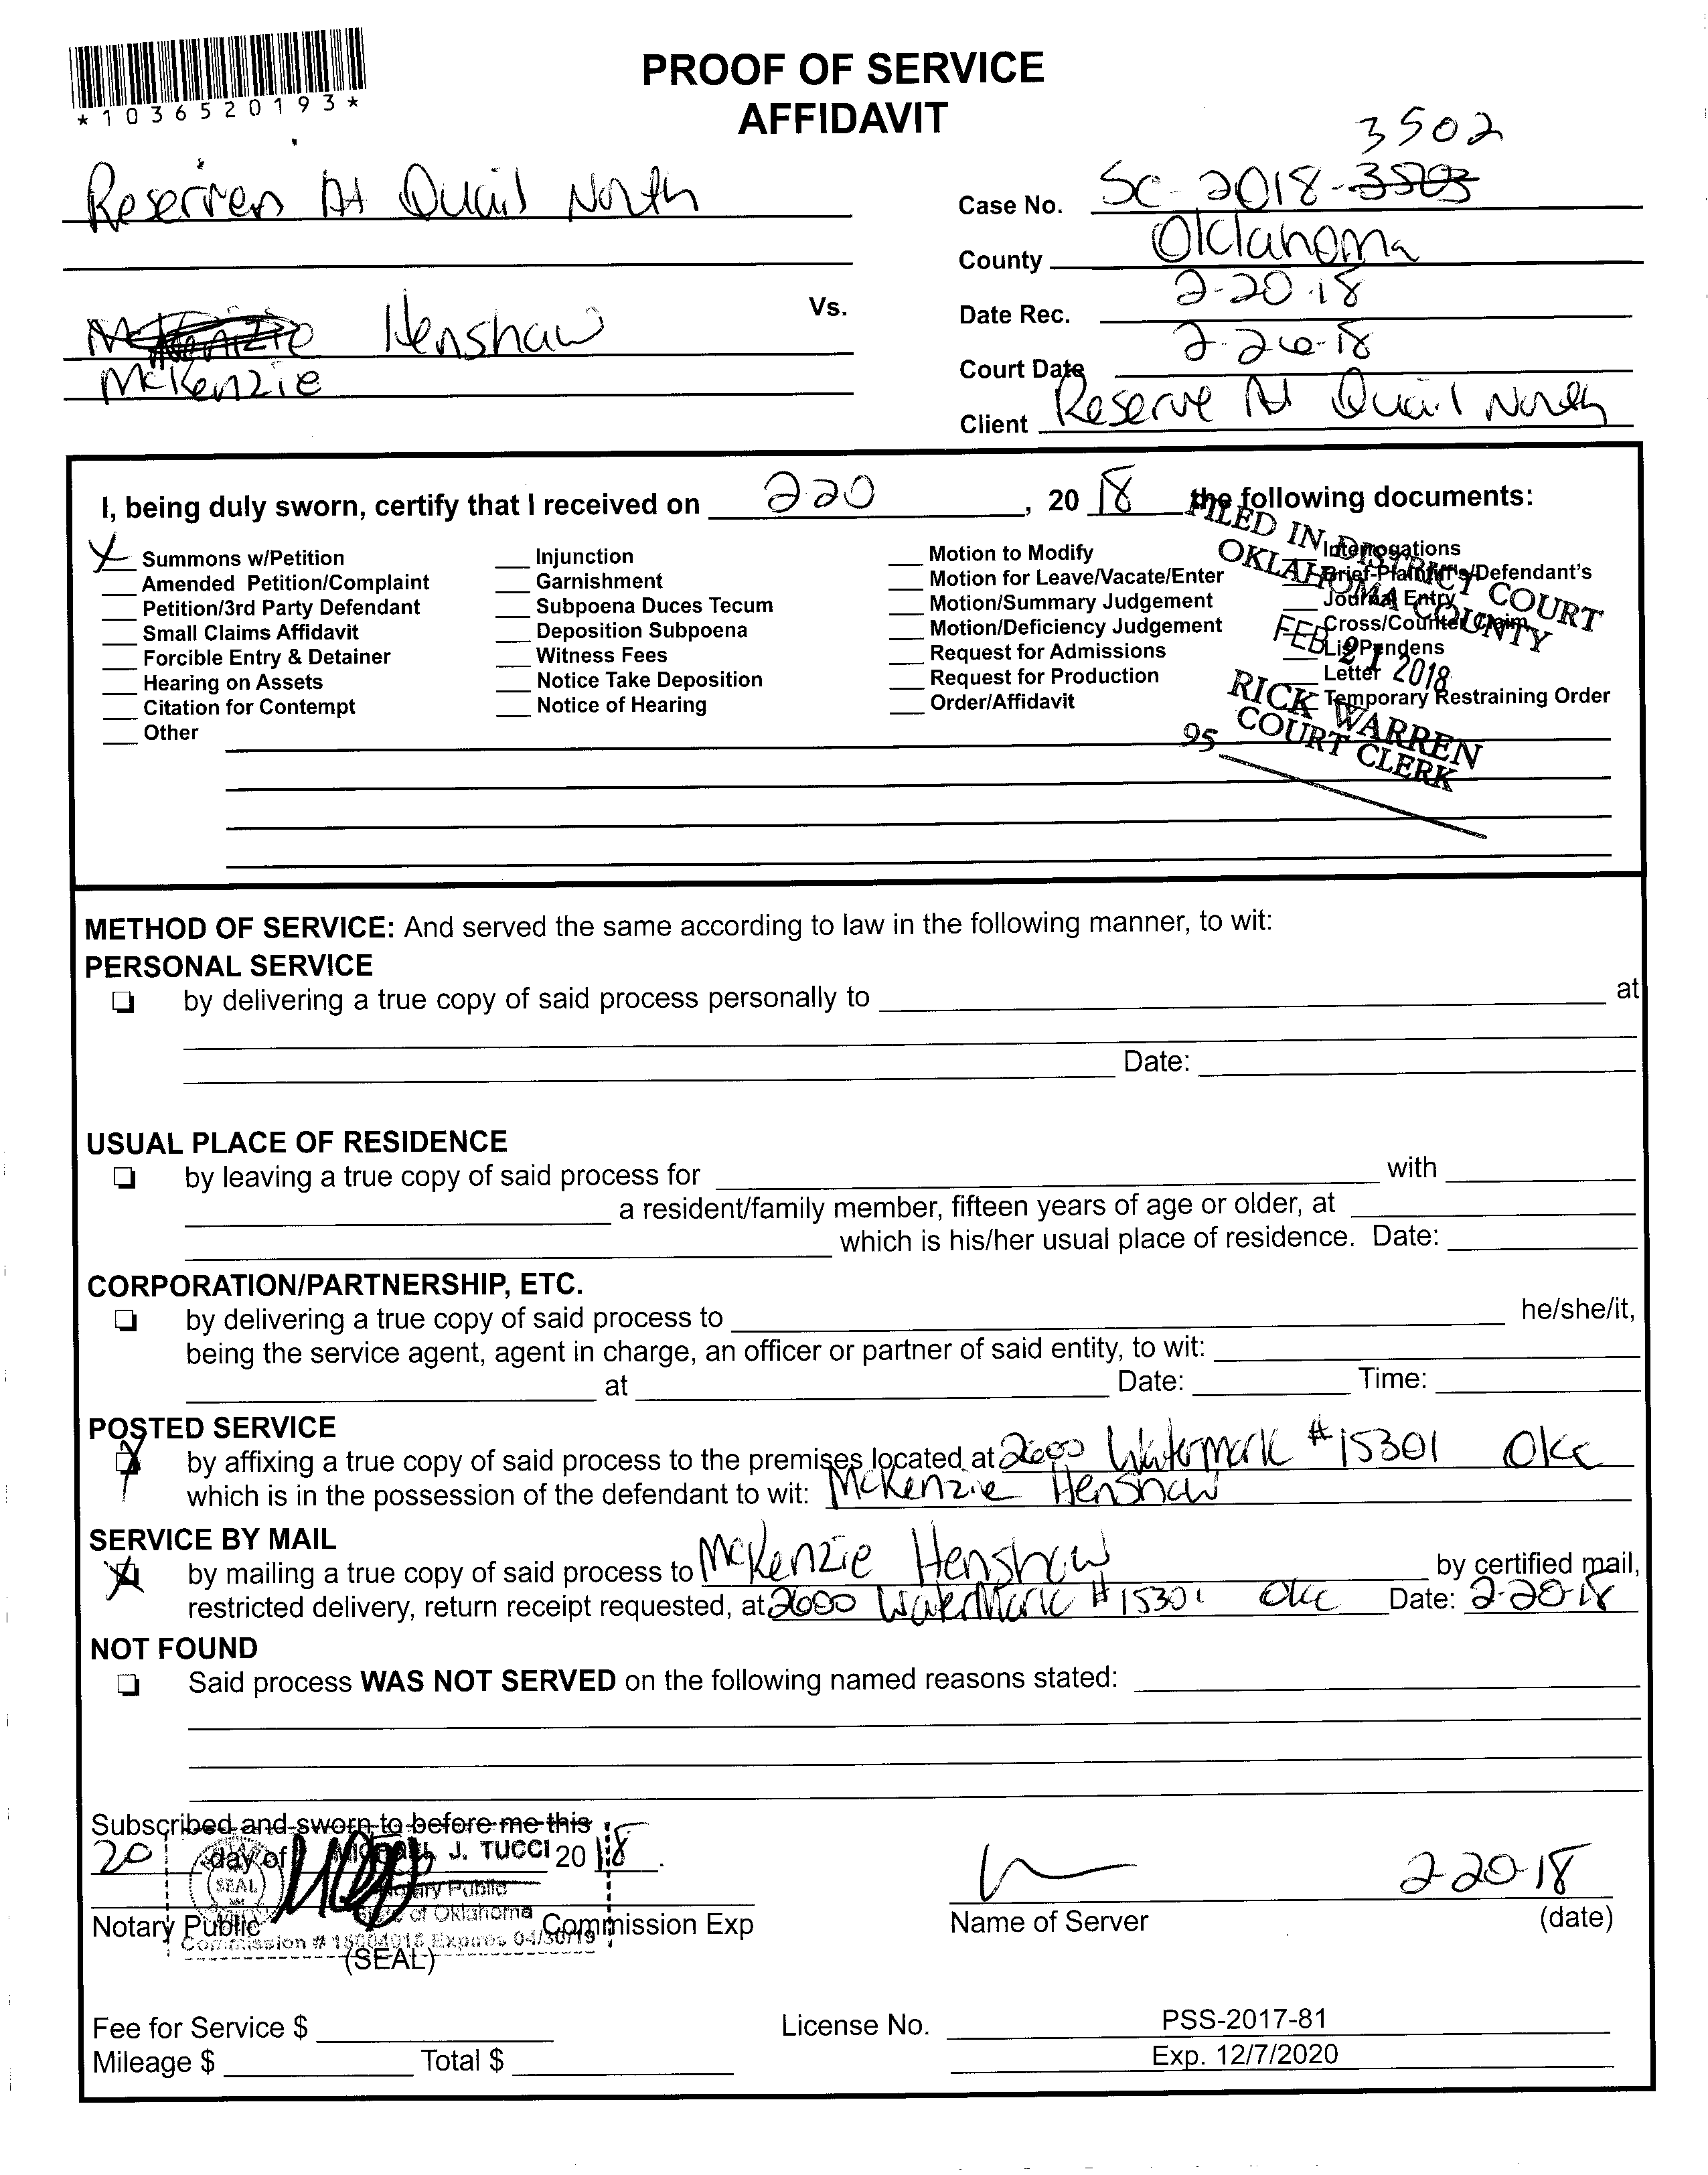 *1036520193*
PROOF OF SERVICE
AFFIDAVIT
3502
Reserves At Quail North
Case No. SC-2018-3503
County Oklahoma
Vs.
Date Rec. 2-20-18
Henshaw
McKenzie
Court Date 2-26-18
Client Reserve At Quail North
I, being duly sworn, certify that I received on 220, 20 18 the following documents:
X Summons w/Petition
Amended Petition/Complaint
Petition/3rd Party Defendant
Small Claims Affidavit
Forcible Entry & Detainer
Hearing on Assets
Citation for Contempt
Other
Injunction
Garnishment
Subpoena Duces Tecum
Deposition Subpoena
Witness Fees
Notice Take Deposition
Notice of Hearing
Motion to Modify
Motion for Leave/Vacate/Enter
Motion/Summary Judgement
Motion/Deficiency Judgement
Request for Admissions
Request for Production
Order/Affidavit
Interrogations
Brief-Plaintiff's/Defendant's
Journal Entry
Cross/Counter Claim
Lis Pendens
Letter
Temporary Restraining Order
FILED IN DISTRICT COURT
OKLAHOMA COUNTY
FEB 21 2018
RICK WARREN
COURT CLERK
95
METHOD OF SERVICE: And served the same according to law in the following manner, to wit:
PERSONAL SERVICE
by delivering a true copy of said process personally to at
Date:
USUAL PLACE OF RESIDENCE
by leaving a true copy of said process for with
a resident/family member, fifteen years of age or older, at
which is his/her usual place of residence. Date:
CORPORATION/PARTNERSHIP, ETC.
by delivering a true copy of said process to he/she/it,
being the service agent, agent in charge, an officer or partner of said entity, to wit:
at Date: Time:
POSTED SERVICE
X by affixing a true copy of said process to the premises located at 2600 Watermark #15301 OKC
which is in the possession of the defendant to wit: McKenzie Henshaw
SERVICE BY MAIL
X by mailing a true copy of said process to McKenzie Henshaw by certified mail,
restricted delivery, return receipt requested, at 2600 Watermark #15301 OKC Date: 2-20-18
NOT FOUND
Said process WAS NOT SERVED on the following named reasons stated:
Subscribed and sworn to before me this
20 day of 20 18.
MICHAEL J. TUCCI
SEAL
Notary Public
State of Oklahoma
Commission # 15004018 Expires 04/30/19
Notary Public Commission Exp
(SEAL)
2-20-18
Name of Server (date)
Fee for Service $
Mileage $ Total $
License No. PSS-2017-81
Exp. 12/7/2020